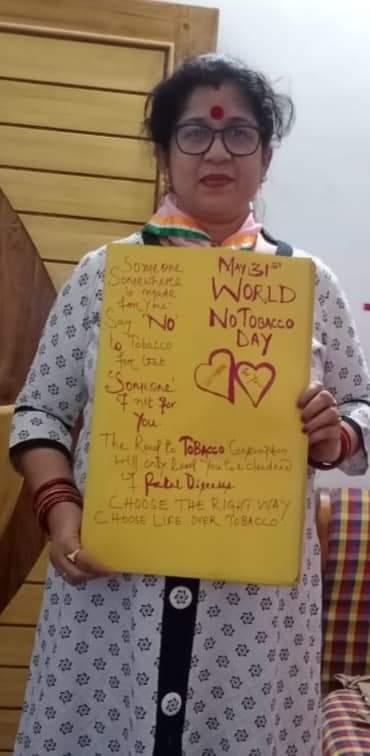 Someone
Somewhere
is made
for You.
Say 'No'
to Tobacco
for that
'Someone'
If not for
You
MAY 31ST
WORLD
NO TOBACCO
DAY
The Road to TOBACCO Consumption
will only lead You to a
of Fatal Disease
CHOOSE THE RIGHT WAY
CHOOSE LIFE OVER TOBACCO